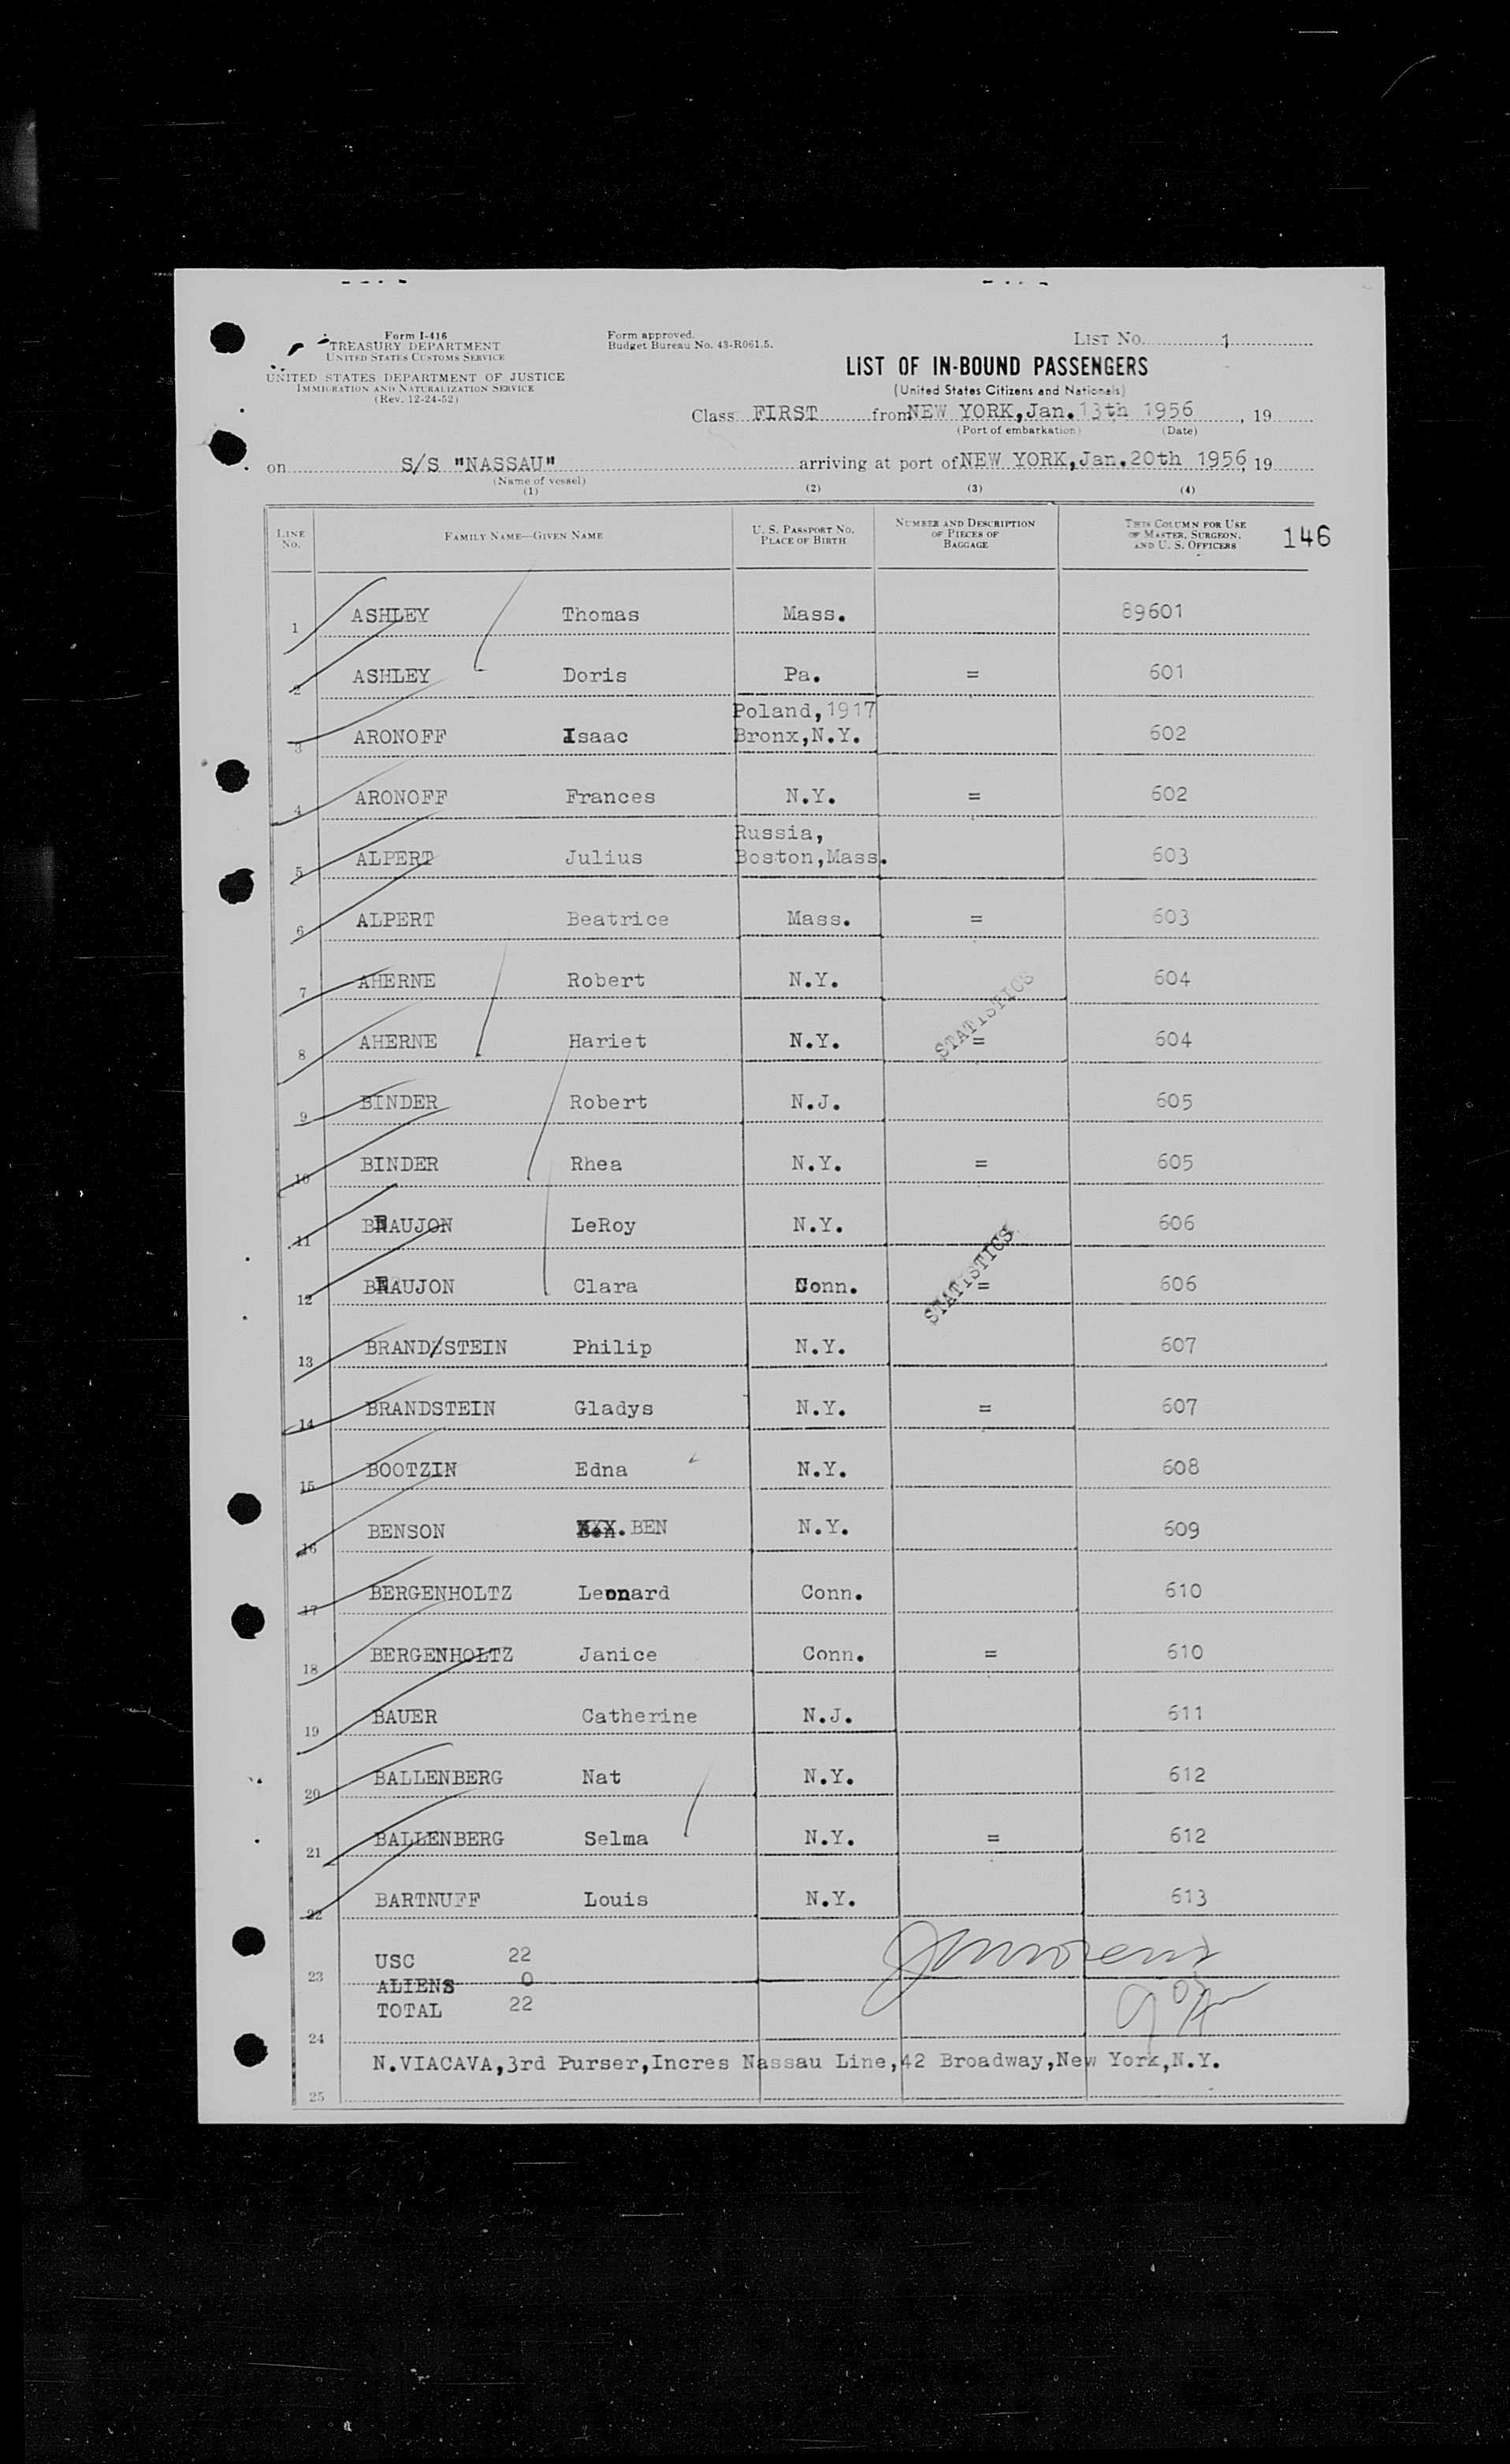 Form I-416
TREASURY DEPARTMENT
UNITED STATES CUSTOMS SERVICE
UNITED STATES DEPARTMENT OF JUSTICE
IMMIGRATION AND NATURALIZATION SERVICE
(Rev. 12-24-52)
Form approved.
Budget Bureau No. 43-R061.5.
LIST No. 1
LIST OF IN-BOUND PASSENGERS
(United States Citizens and Nationals)
Class FIRST from NEW YORK, Jan. 13th 1956, 19
(Port of embarkation) (Date)
on S/S "NASSAU" arriving at port of NEW YORK, Jan. 20th 1956, 19
(Name of vessel)
(1) (2) (3) (4)
LINE No. FAMILY NAME—GIVEN NAME U. S. PASSPORT No. PLACE OF BIRTH NUMBER AND DESCRIPTION OF PIECES OF BAGGAGE THIS COLUMN FOR USE OF MASTER, SURGEON, AND U. S. OFFICERS 146
1 ASHLEY Thomas Mass. 89601
2 ASHLEY Doris Pa. = 601
Poland, 1917
3 ARONOFF Isaac Bronx, N.Y. 602
4 ARONOFF Frances N.Y. = 602
Russia,
5 ALPERT Julius Boston, Mass. 603
6 ALPERT Beatrice Mass. = 603
7 AHERNE Robert N.Y. 604
STATISTICS
8 AHERNE Hariet N.Y. = 604
9 BINDER Robert N.J. 605
10 BINDER Rhea N.Y. = 605
11 BEAUJON LeRoy N.Y. 606
STATISTICS
12 BEAUJON Clara Conn. = 606
13 BRAND/STEIN Philip N.Y. 607
14 BRANDSTEIN Gladys N.Y. = 607
15 BOOTZIN Edna N.Y. 608
16 BENSON BEN N.Y. 609
17 BERGENHOLTZ Leonard Conn. 610
18 BERGENHOLTZ Janice Conn. = 610
19 BAUER Catherine N.J. 611
20 BALLENBERG Nat N.Y. 612
21 BALLENBERG Selma N.Y. = 612
22 BARTNUFF Louis N.Y. 613
USC 22
23 ALIENS 0
TOTAL 22
24
N.VIACAVA, 3rd Purser, Incres Nassau Line, 42 Broadway, New York, N.Y.
25